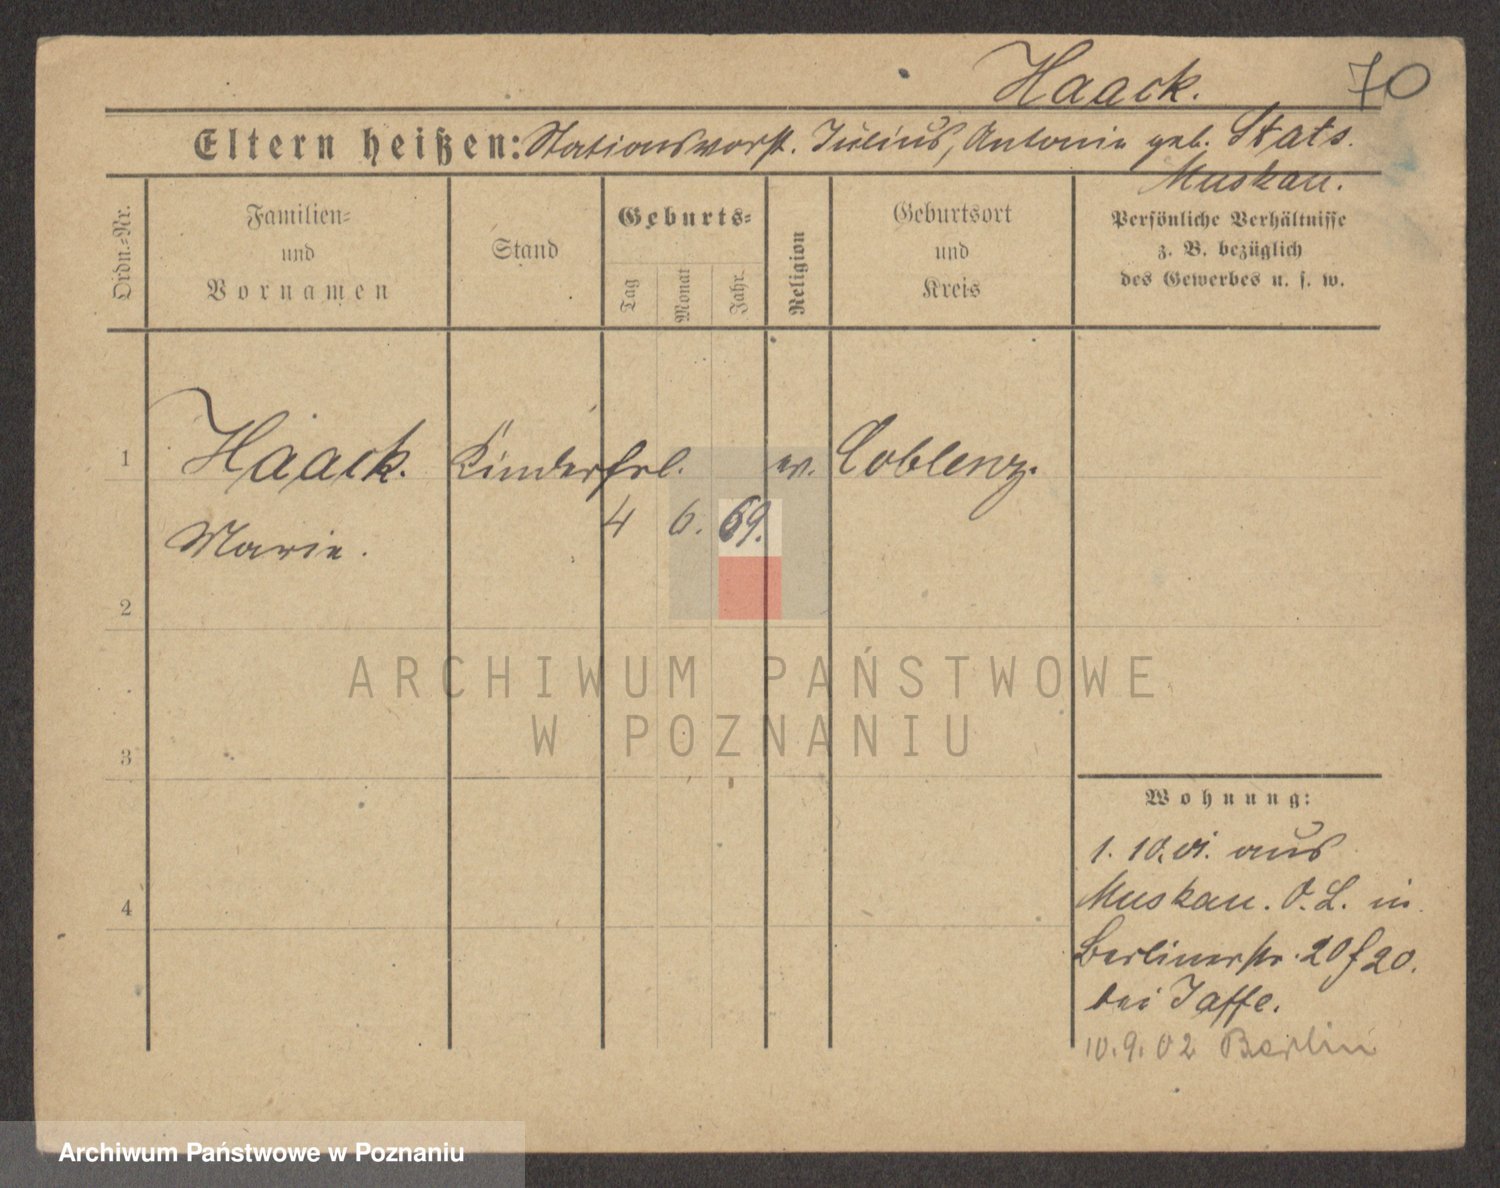 Haack. 70
Eltern heißen: Stationsvorst. Julius, Antonie geb. Stats.
Muskau.
Ordn.-Nr.
Familien-
und
Vornamen
Stand
Geburts-
Tag
Monat
Jahr.
Religion
Geburtsort
und
Kreis
Persönliche Verhältnisse
z. B. bezüglich
des Gewerbes u. s. w.
1 Haack. Kinderfrl. ev. Coblenz.
4 6. 69.
Marie.
2
ARCHIWUM PAŃSTWOWE
W POZNANIU
3
Wohnung:
1. 10. 01. aus
4 Muskau. O. L. in
Berlinerstr. 20 f 20.
bei Jaffe.
10. 9. 02 Berlin
Archiwum Państwowe w Poznaniu